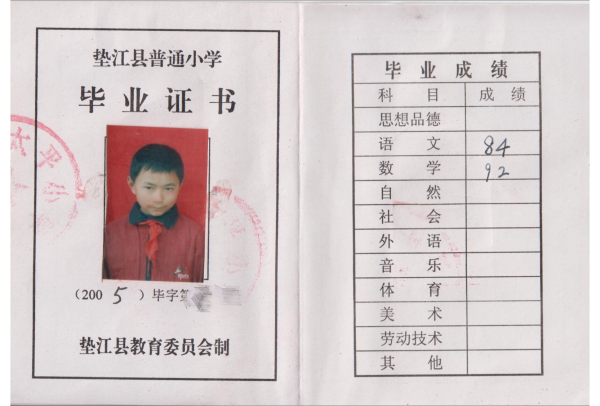 垫江县普通小学
毕业证书
(2005)毕字第
垫江县教育委员会制
毕业成绩
科目 成绩
思想品德
语文 84
数学 92
自然
社会
外语
音乐
体育
美术
劳动技术
其他